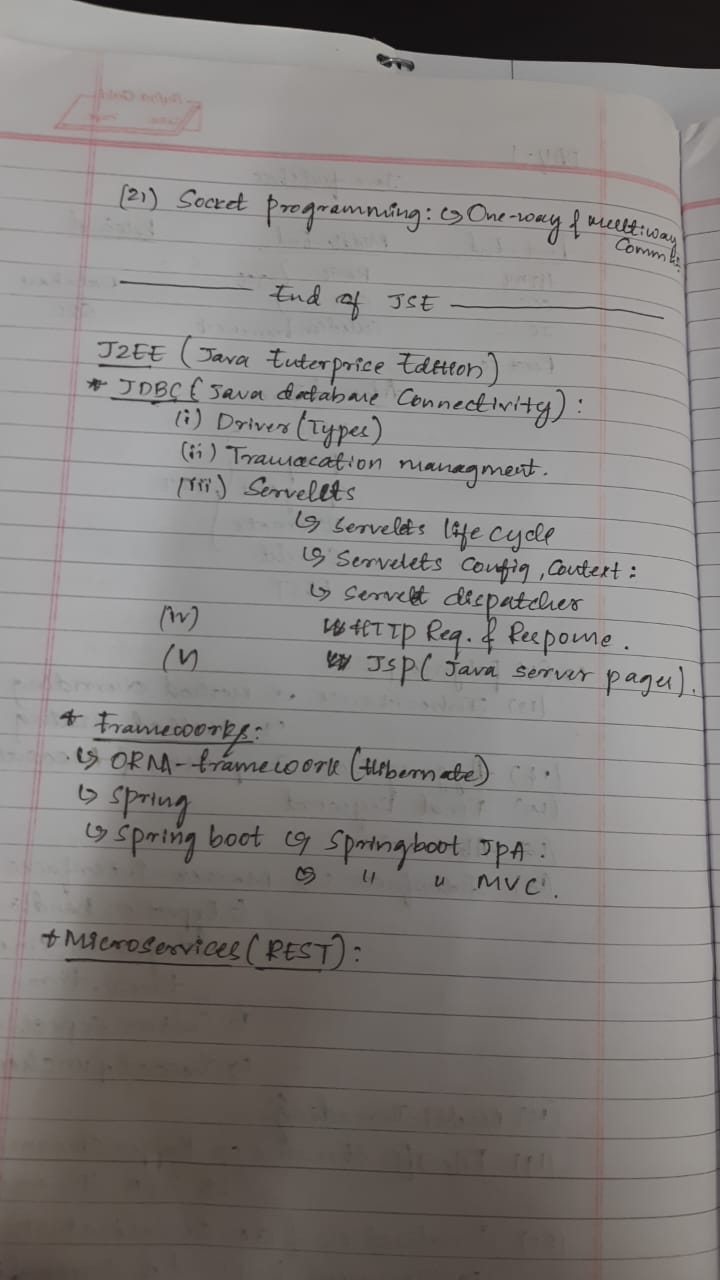 (21) Socket programming: ↳ One-way & multiway
Comm
———— End of JSE ————
J2EE (Java Enterprice Edition)
* JDBC (Java database Connectivity):
(i) Driver (Types)
(ii) Tranacation managment.
(iii) Servelets
↳ Servelets life cycle
↳ Servelets Config, Context:
↳ Servelet dispatcher
(iv) HTTP Req. & Response.
(v) JSP (Java server pages).
* Frameworks:
↳ ORM-framework (Hibernate)
↳ Spring
↳ Spring boot ↳ Springboot JPA:
↳ " " MVC.
* Microservices (REST):